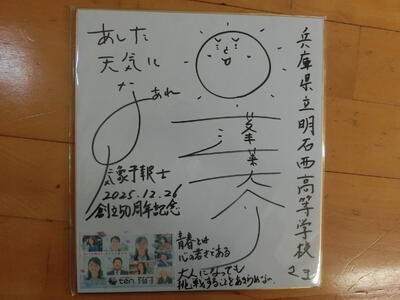 兵庫県立明石西高等学校さま
あした
天気に
な
あれ
蓬莱大介
気象予報士
2025.12.26
創立50周年記念
青春とは
心の若さである
大人になっても
挑戦することをあきらめない
ten.